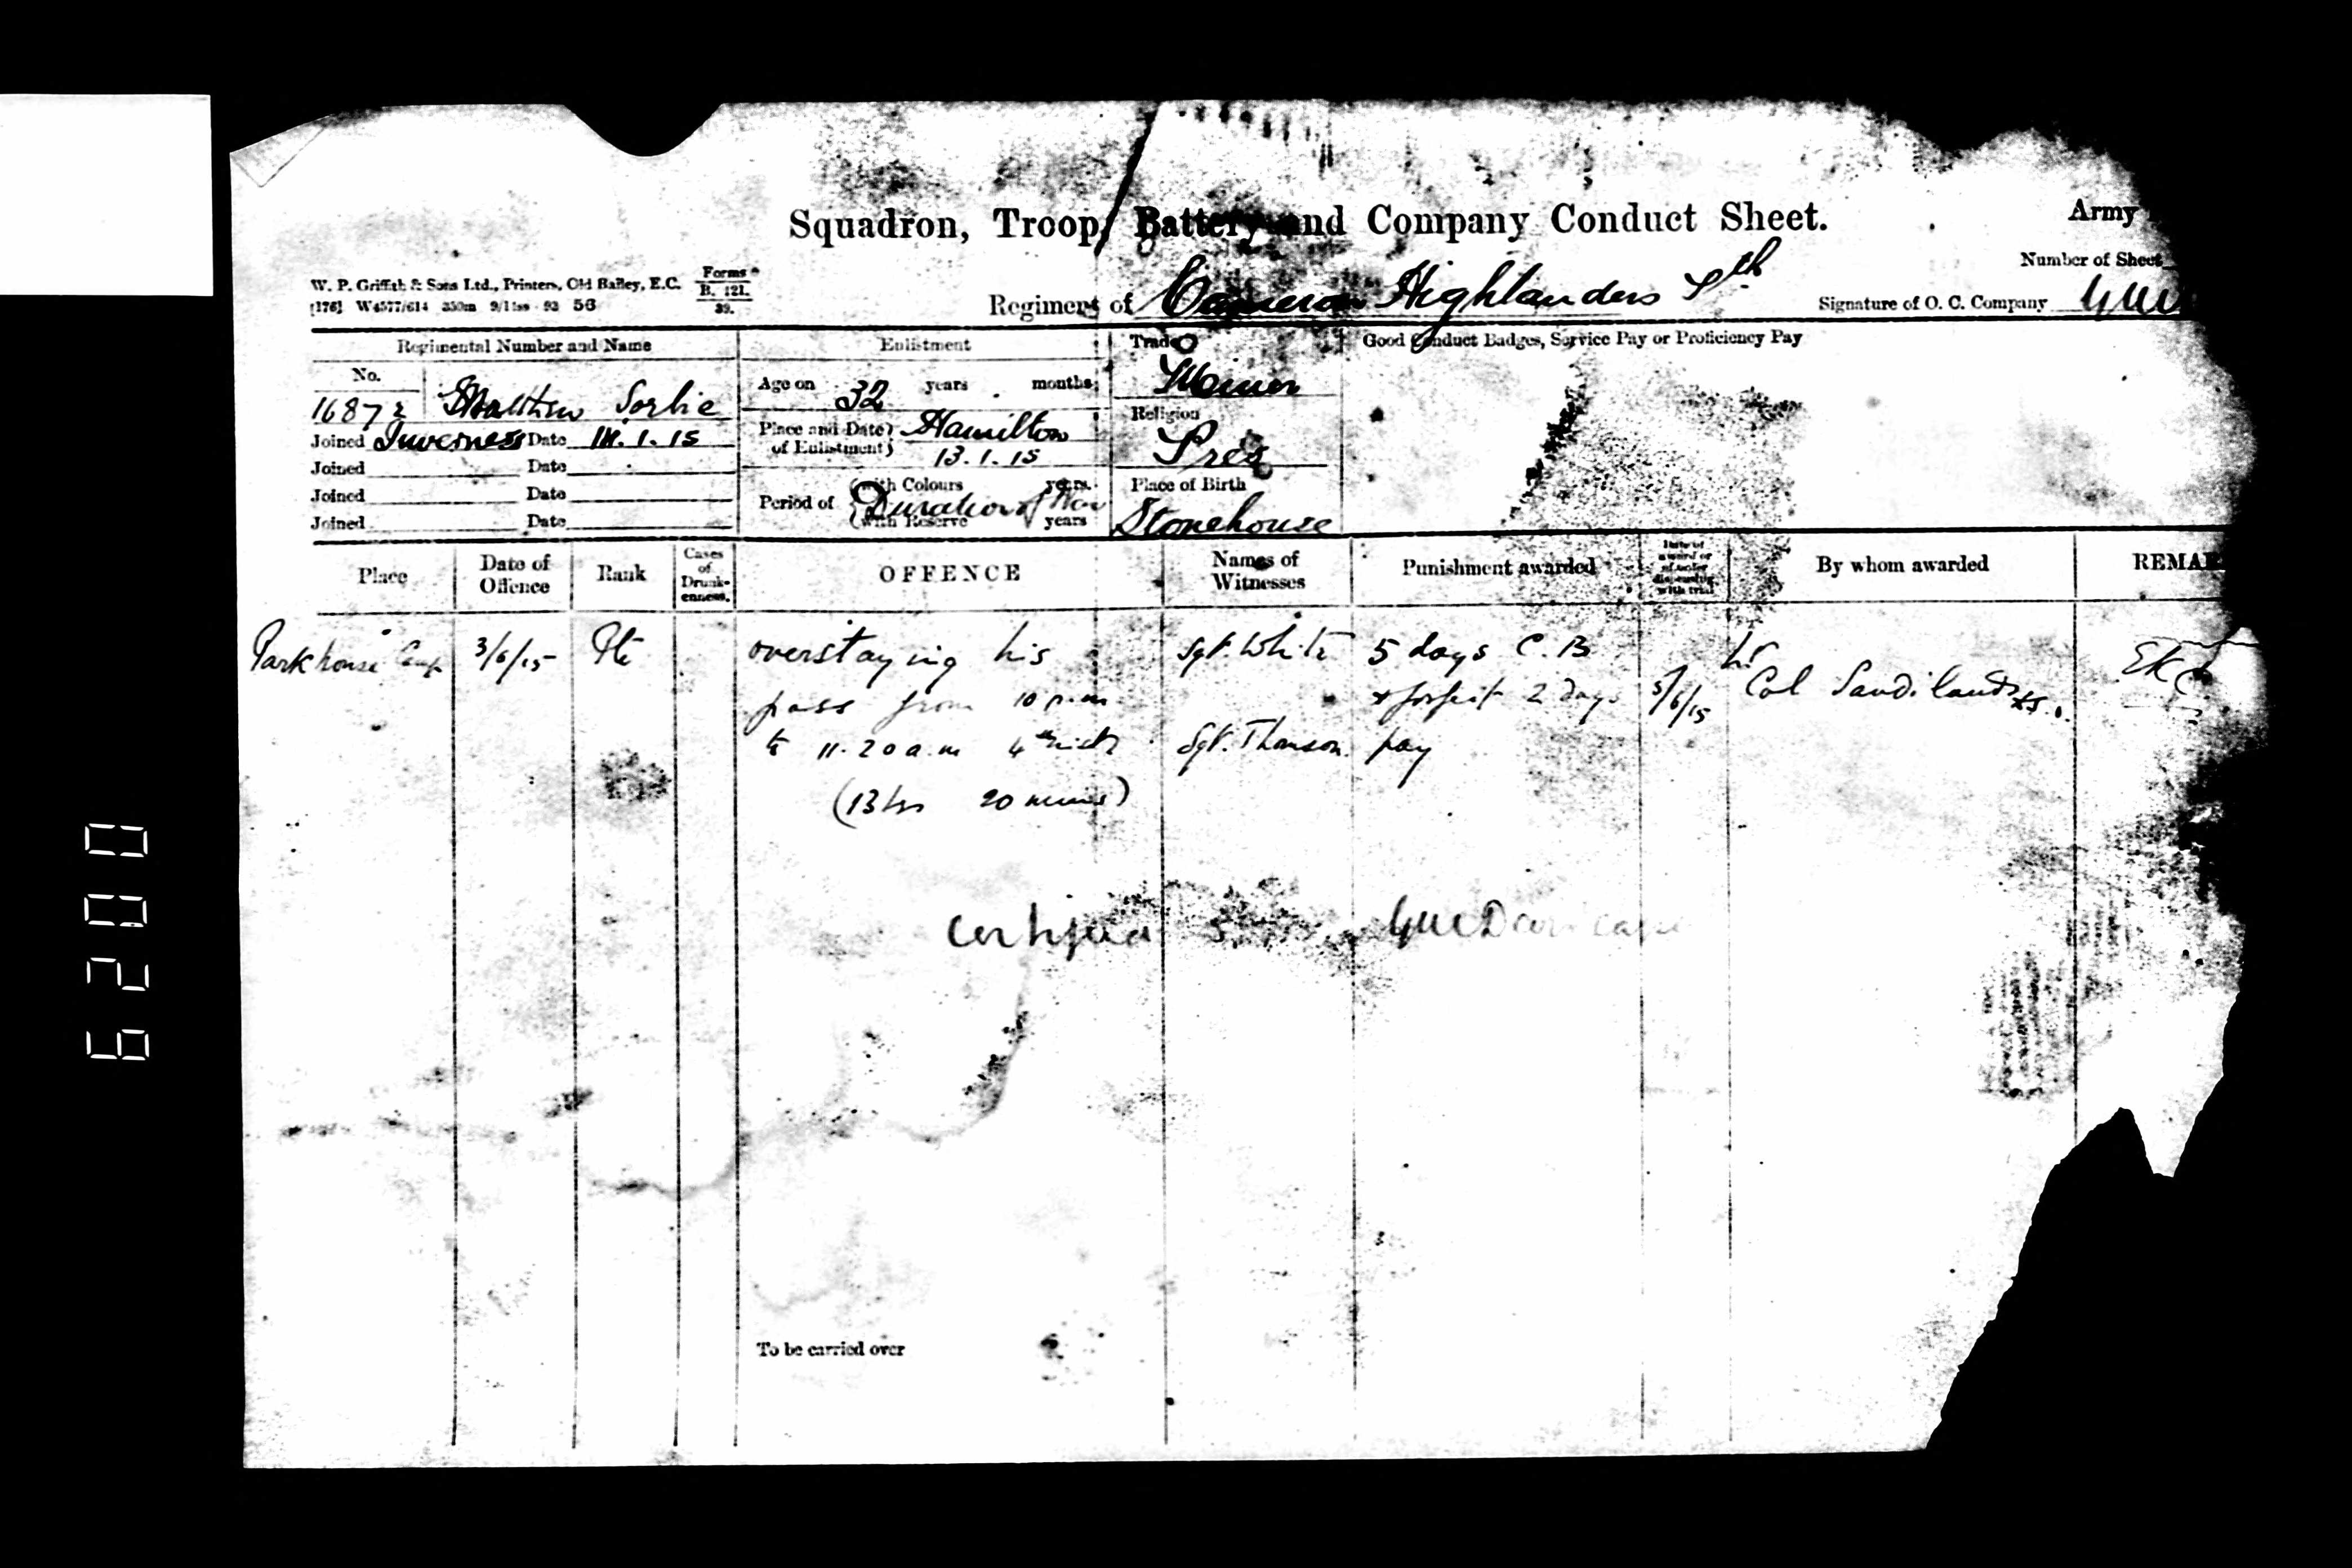 Squadron, Troop, Battery and Company Conduct Sheet.
Army
Number of Sheet
W. P. Griffith & Sons Ltd., Printers, Old Bailey, E.C.
Forms
B. 121.
39.
Regiment of Cameron Highlanders
Signature of O. C. Company
Regimental Number and Name
No.
16872 Matthew Sorbie
Joined Inverness Date 1.15
Joined Date
Joined Date
Joined Date
Enlistment
Age on 32 years months
Place and Date of Enlistment Hamilton
13.1.15
Period of with Colours years.
Duration of War
with Reserve years
Trade
Miner
Religion
Pres
Place of Birth
Stonehouse
Good Conduct Badges, Service Pay or Proficiency Pay
Place
Date of Offence
Rank
Cases of Drunkenness.
OFFENCE
Names of Witnesses
Punishment awarded
Date of award or of order dispensing with trial
By whom awarded
REMAR
Parkhouse Camp 3/6/15 Pte overstaying his Sgt. White 5 days C.B
pass from 10 p.m & forfeit 2 days 5/6/15 Col Sandilands
to 11.20 a.m 4th inst Sgt. Thomson. pay
(13 hrs 20 mins)
Certified
To be carried over
6200